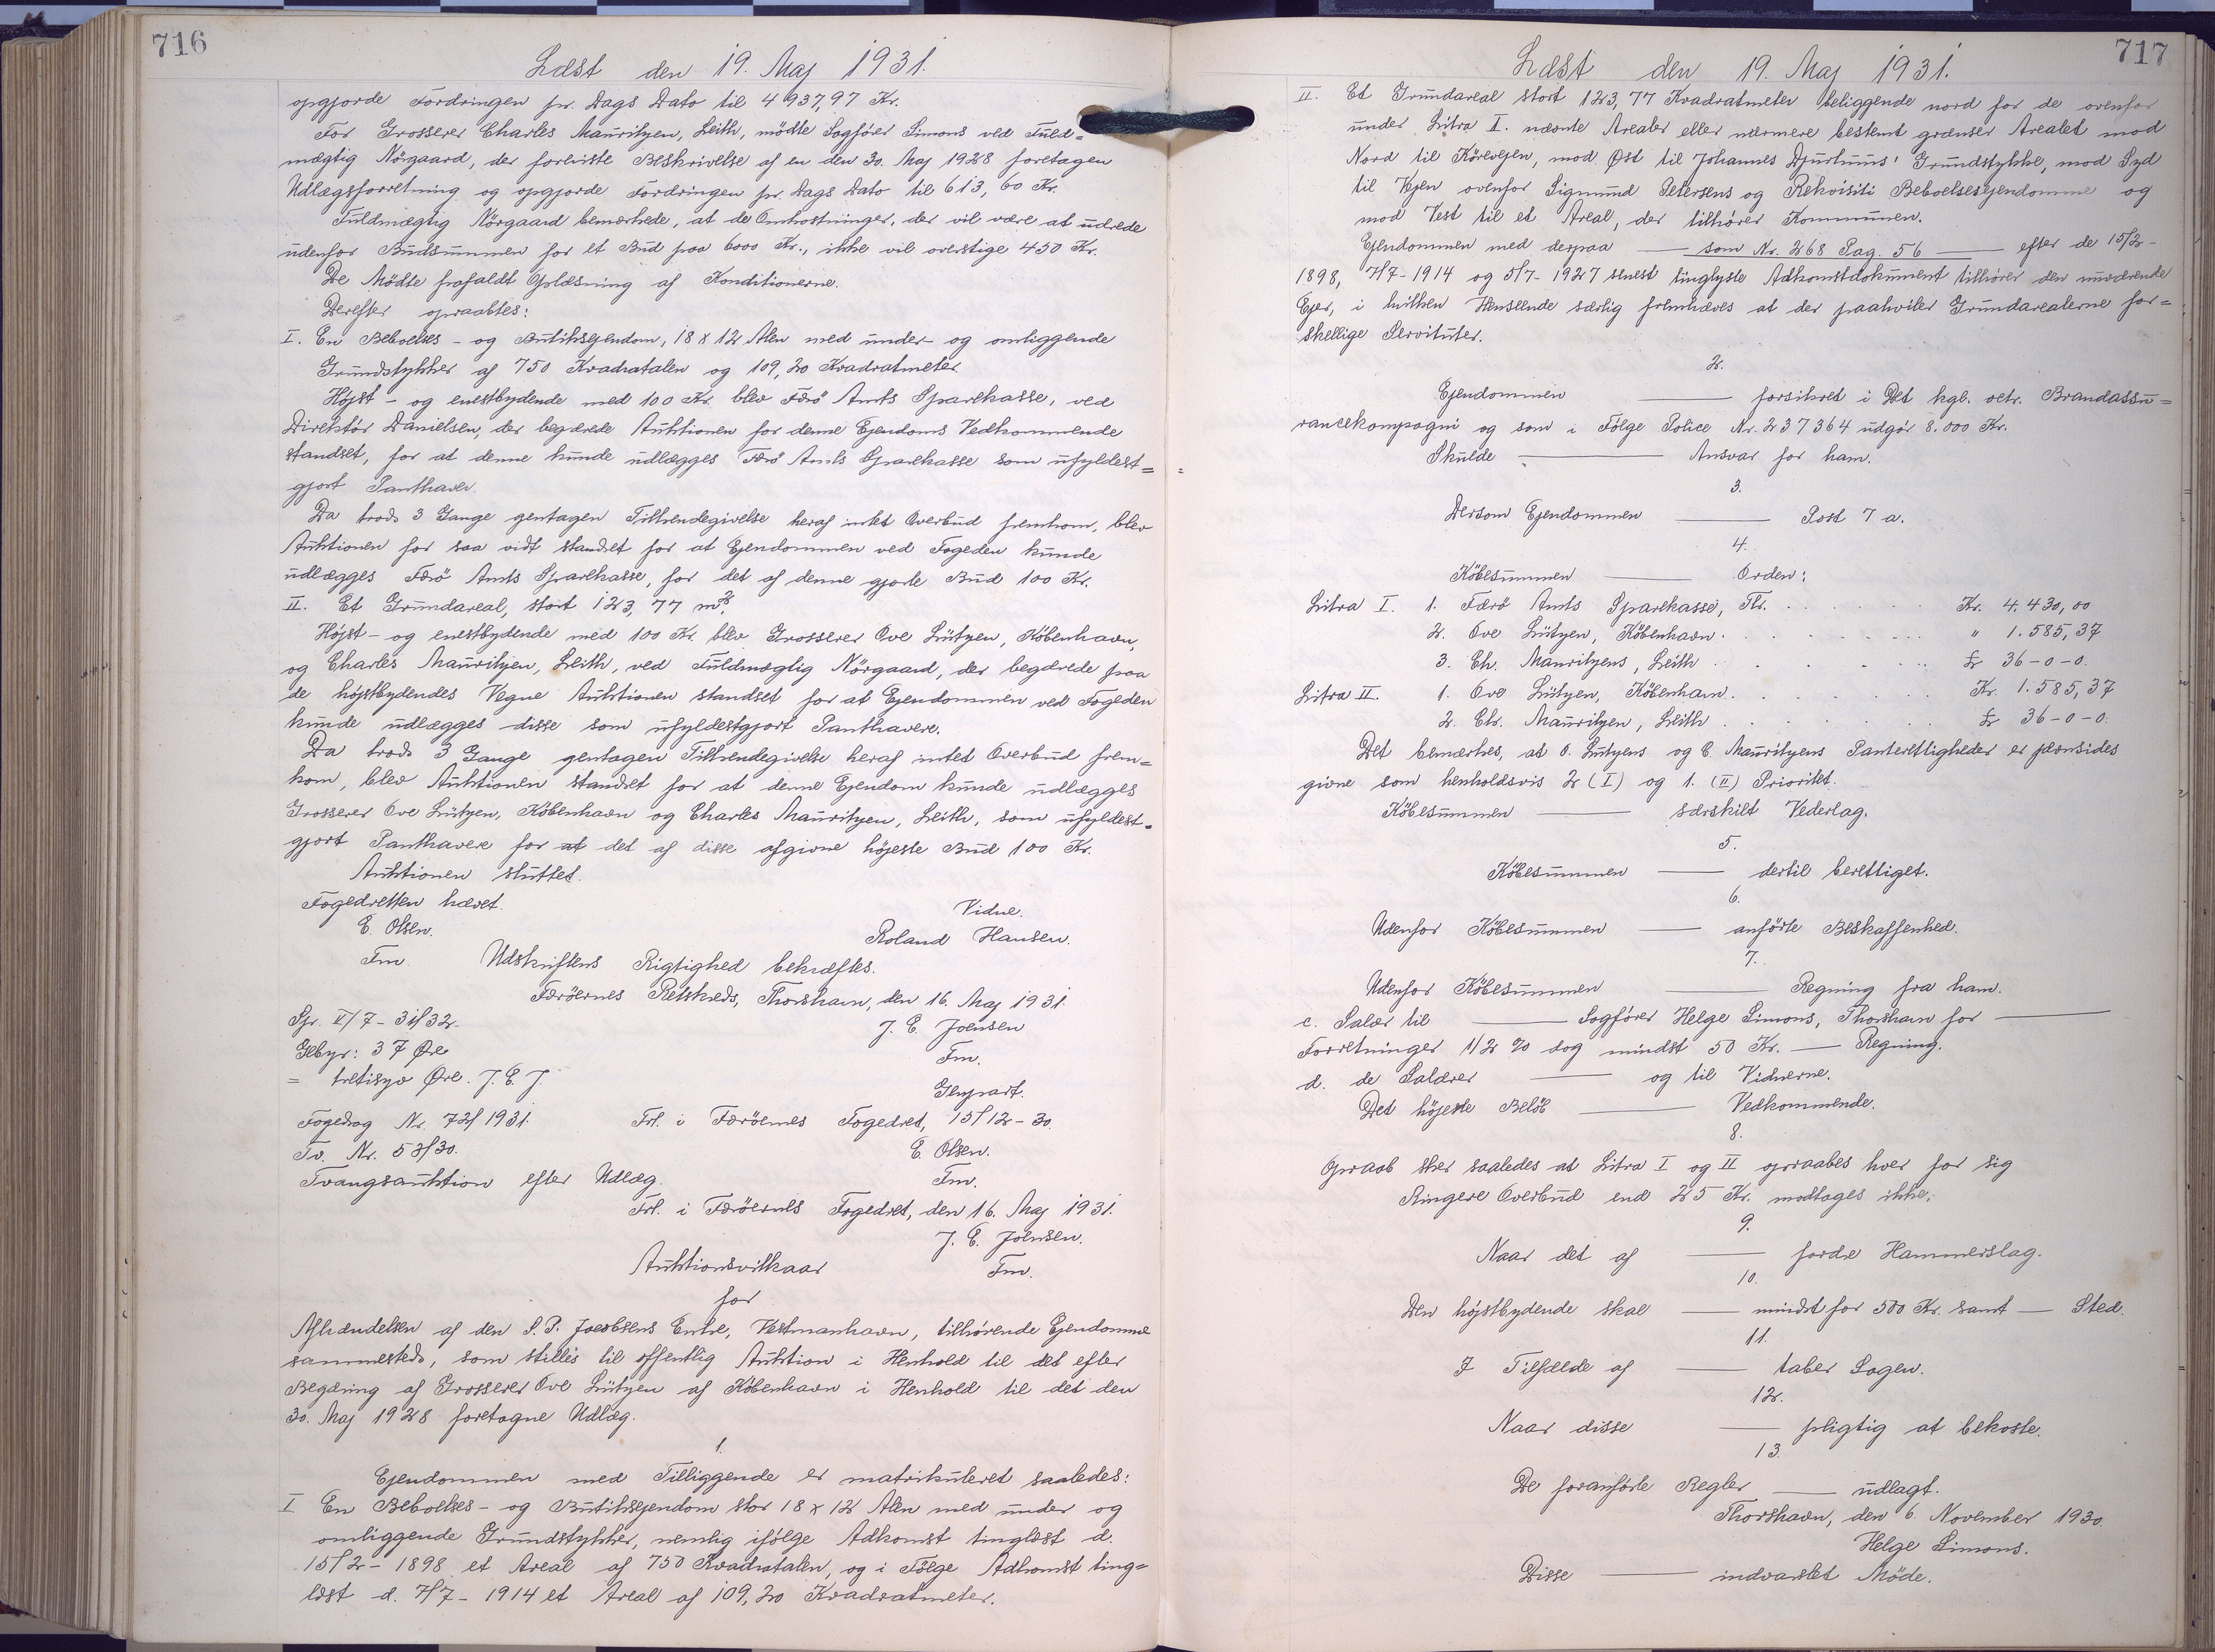 716
Læst den 19. Maj 1931.
opgjorde Fordringen pr. Dags Dato til 4937,97 Kr.
For Grosserer Charles Mauritzen, Leith, mödte Sagförer Simons ved Fuld=
mægtig Nörgaard, der forlviste Beskrivelse af en den 30. Maj 1928 foretagen
Udlægsforretning og opgjorde Fordringen pr. Dags Dato til 613,60 Kr.
Fuldmægtig Nörgaard bemærkede, at de Omkostninger, der vil være at udrede
udenfor Budsummen for et Bud paa 6000 Kr., ikke vil overstige 450 Kr.
De Mödte frafaldt Oplæsning af Konditionerne.
Derefter opraabtes:
I. En Beboelses- og Butiksejendom, 18 x 12 Alen med under- og omliggende
Grundstykker af 750 Kvadratalen og 109,20 Kvadratmeter.
Höjst- og enestbydende med 100 Kr. blev Færö Amts Sparekasse, ved
Direktör Danielsen, der begærede Auktionen for denne Ejendoms Vedkommende
standset, for at denne kunde udlægges Færö Amts Sparekasse som ufyldest=
gjort Panthaver.
Da trods 3 Gange gentagen Tilkendegivelse heraf intet Overbud fremkom, blev
Auktionen for saa vidt standset for at Ejendommen ved Fogeden kunde
udlægges Færö Amts Sparekasse, for det af denne gjorte Bud 100 Kr.
II. Et Grundareal, stort 123,77 m².
Höjst- og enestbydende med 100 Kr. blev Grosserer Ove Lützen, Köbenhavn,
og Charles Mauritzen, Leith, ved Fuldmægtig Nörgaard, der begærede paa
de höjstbydendes Vegne Auktionen standset for at Ejendommen ved Fogeden
kunde udlægges disse som ufyldestgjort Panthavere.
Da trods 3 Gange gentagen Tilkendegivelse heraf intet Overbud frem=
kom, blev Auktionen standset for at denne Ejendom kunde udlægges
Grosserer Ove Lützen, Köbenhavn og Charles Mauritzen, Leith, som ufyldest=
gjort Panthavere for at det af disse afgivne höjeste Bud 100 Kr.
Auktionen sluttet.
Fogedretten hævet.
Vidne.
E. Olsen.
Roland Hansen.
Fm.
Udskriftens Rigtighed bekræftes.
Færöernes Retskreds, Thorshavn, den 16. Maj 1931.
Spr. V/7 - 31/32.
J. E. Joensen
Gebyr: 37 Øre
Fm.
= tretisyv Øre. J. E. J.
Genpart.
Fogedsag Nr. 72/1931.
Frl. i Færöernes Fogedret, 15/12-30.
Tv. Nr. 53/30.
E. Olsen.
Tvangsauktion efter Udlæg.
Fm.
Frl. i Færöernes Fogedret, den 16. Maj 1931.
J. E. Joensen.
Auktionsvilkaar
Fm.
for
Afhændelsen af den S. P. Jacobsens Enke, Vestmanhavn, tilhørende Ejendomme
sammesteds, som stilles til offentlig Auktion i Henhold til det efter
Begæring af Grosserer Ove Lützen af Köbenhavn i Henhold til det den
30. Maj 1928 foretagne Udlæg.
1.
Ejendommen med Tilliggende er matrikuleret saaledes:
I En Beboelses- og Butiksejendom stor 18 x 12 Alen med under og
omliggende Grundstykker, nemlig ifölge Adkomst tinglæst d.
15/2-1898 et Areal af 750 Kvadratalen, og i Fölge Adkomst ting=
læst d. 7/7-1914 et Areal af 109,20 Kvadratmeter.
717
Læst den 19. Maj 1931.
II. Et Grundareal stort 123,77 Kvadratmeter beliggende nord for de ovenfor
under Litra I. nævnte Arealer eller nærmere bestemt grænser Arealet mod
Nord til Körevejen, mod Øst til Johannes Djurhuus' Grundstykke, mod Syd
til Vejen ovenfor Sigmund Petersens og Rekvisiti Beboelsesejendomme og
mod Vest til et Areal, der tilhører Kommunen.
Ejendommen med derpaa — som Nr. 268 Pag. 56 — efter de 15/2-
1898, 7/7-1914 og 5/7-1927 senest tinglyste Adkomstdokument tilhører den nuværende
Ejer, i hvilken Henseende særlig fremhæves at der paahviler Grundarealerne for=
skellige Servituter.
2.
Ejendommen — forsikret i Det kgl. octr. Brandassu=
rancekompagni og som i Fölge Police Nr. 237364 udgör 8.000 Kr.
Skulde — Ansvar for ham.
3.
Dersom Ejendommen — Post 7 a.
4.
Köbesummen — Orden:
Litra I. 1. Færö Amts Sparekasse, Thr. . . . . . . Kr. 4.430,00
2. Ove Lützen, Köbenhavn . . . . . . . " 1.585,37
3. Ch. Mauritzens, Leith . . . . . . £ 36-0-0.
Litra II. 1. Ove Lützen, Köbenhavn . . . . . . Kr. 1.585,37
2. Ch. Mauritzen, Leith . . . . . . £ 36-0-0.
Det bemærkes, at O. Lützens og C. Mauritzens Panterettigheder er jævnsides
givne som henholdsvis 2 (I) og 1. (II) Prioritet.
Köbesummen — særskilt Vederlag.
5.
Köbesummen — dertil berettiget.
6.
Udenfor Köbesummen — anförte Beskaffenhed.
7.
Udenfor Köbesummen — Regning fra ham.
c. Salær til — Sagförer Helge Simons, Thorshavn for —
Forretninger 1/2 % dog mindst 50 Kr. — Regning.
d. de Salærer — og til Vidnerne.
Det höjeste Belöb — Vedkommende.
8.
Opraab sker saaledes at Litra I og II opraabes hver for sig
Ringere Overbud end 25 Kr. modtages ikke.
9.
Naar det af — fordre Hammerslag.
10.
Den höjstbydende skal — mindst for 500 Kr. samt — Sted.
11.
I Tilfælde af — taber Sagen.
12.
Naar disse — pligtig at bekoste.
13.
De foranförte Regler — udlagt.
Thorshavn, den 6. November 1930.
Helge Simons.
Disse — indvarslet Möde.